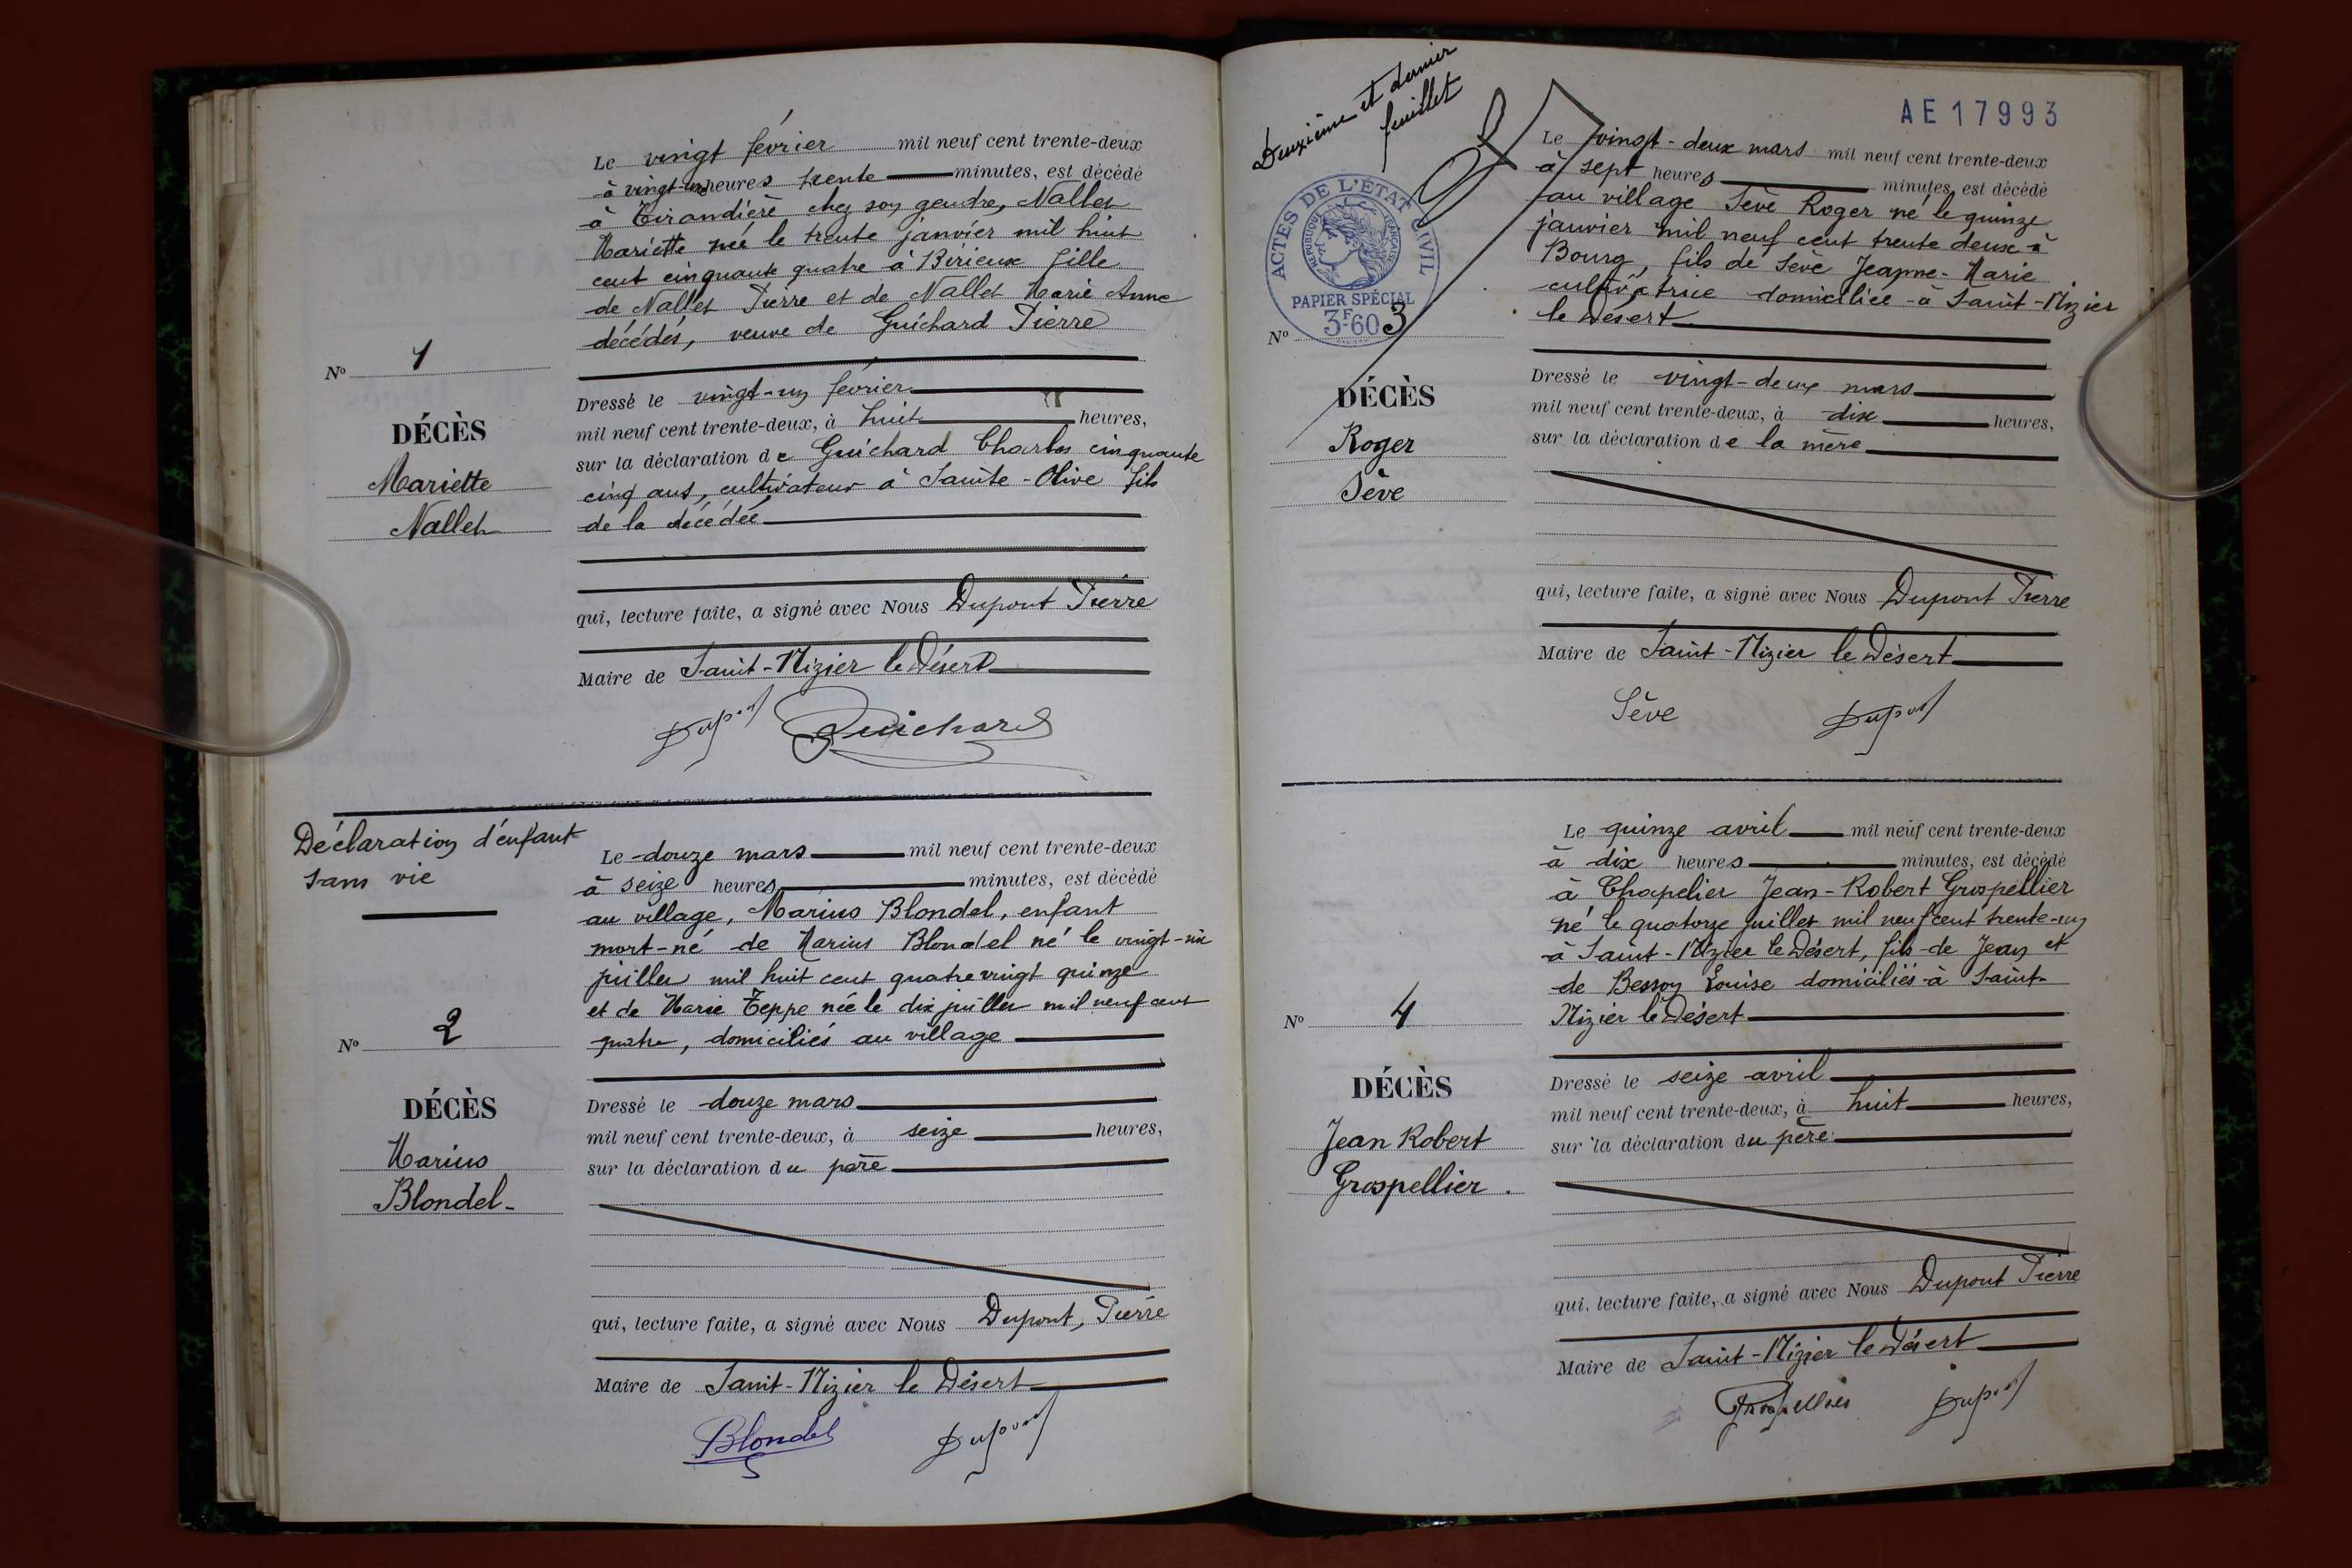 Le vingt février mil neuf cent trente-deux
à vingt-une heures trente minutes, est décédé
à Tirandière chez son gendre, Nallet
Mariette née le trente janvier mil huit
cent cinquante quatre à Birieux fille
de Nallet Pierre et de Nallet Marie Anne
décédés, veuve de Guichard Pierre
N° 1
DÉCÈS
Mariette
Nallet
Dressé le vingt-un février
mil neuf cent trente-deux, à huit heures,
sur la déclaration de Guichard Charles cinquante
cinq ans, cultivateur à Sainte-Olive fils
de la décédée
qui, lecture faite, a signé avec Nous Dupont Pierre
Maire de Saint-Nizier le Désert
Dupont Guichard
Déclaration d'enfant
sans vie
Le douze mars mil neuf cent trente-deux
à seize heures minutes, est décédé
au village, Marius Blondel, enfant
mort-né de Marius Blondel né le vingt-six
juillet mil huit cent quatre vingt quinze
et de Marie Teppe née le dix juillet mil neuf cent
quatre, domiciliés au village
N° 2
DÉCÈS
Marius
Blondel
Dressé le douze mars
mil neuf cent trente-deux, à seize heures,
sur la déclaration du père
qui, lecture faite, a signé avec Nous Dupont, Pierre
Maire de Saint-Nizier le Désert
Blondel Dupont
Deuxième et dernier
feuillet
AE17993
ACTES DE L'ÉTAT CIVIL
RÉPUBLIQUE FRANÇAISE
PAPIER SPÉCIAL
3F60
Le vingt-deux mars mil neuf cent trente-deux
à sept heures minutes, est décédé
au village Sève Roger né le quinze
janvier mil neuf cent trente deux à
Bourg, fils de Sève Jeanne-Marie
cultivatrice domiciliée à Saint-Nizier
le Désert
N° 3
DÉCÈS
Roger
Sève
Dressé le vingt-deux mars
mil neuf cent trente-deux, à dix heures,
sur la déclaration de la mère
qui, lecture faite, a signé avec Nous Dupont Pierre
Maire de Saint-Nizier le Désert
Sève Dupont
Le quinze avril mil neuf cent trente-deux
à dix heures minutes, est décédé
à Chapelier Jean-Robert Grospellier
né le quatorze juillet mil neuf cent trente-un
à Saint-Nizier le Désert, fils de Jean et
de Besson Louise domiciliés à Saint-
Nizier le Désert
N° 4
DÉCÈS
Jean Robert
Grospellier.
Dressé le seize avril
mil neuf cent trente-deux, à huit heures,
sur la déclaration du père
qui, lecture faite, a signé avec Nous Dupont Pierre
Maire de Saint-Nizier le Désert
Grospellier Dupont